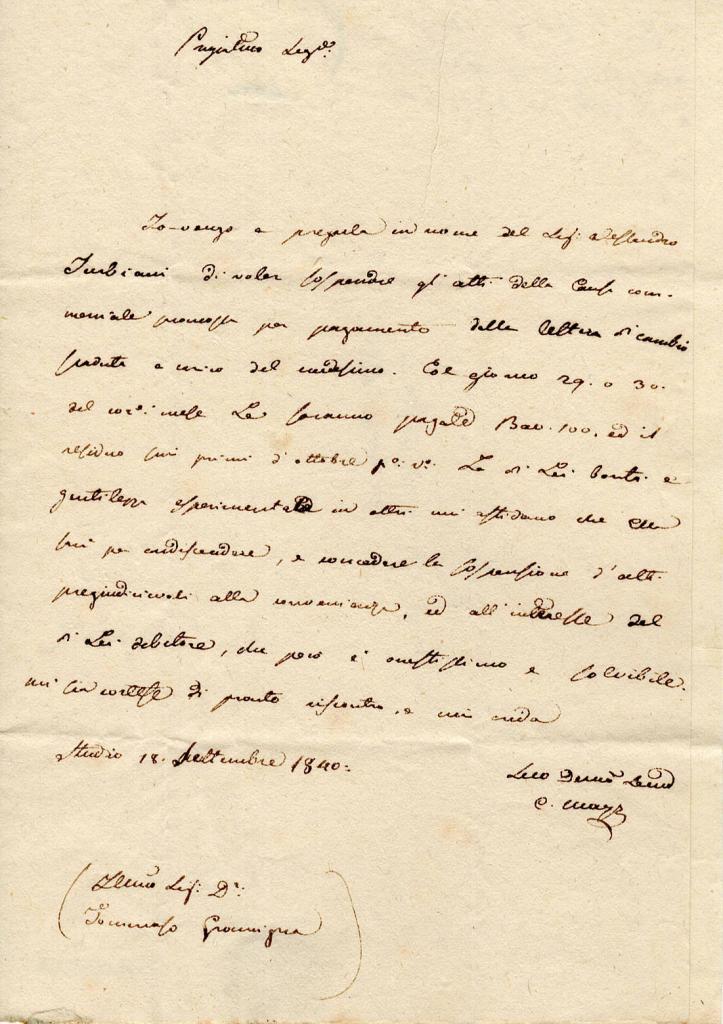 Pregiatmo Sigre:
Io vengo a pregarla in nome del Sig: Alessandro
Turbiani di voler sospendre gl' atti della Causa com-
merciale promossa per pagamento della lettera di cambio
scaduta a carico del medesimo. Col giorno 29. o 30.
del core: mese Le saranno pagati Bav. 100, ed il
residuo sui primi d'ottobre po: vo: La di Lei bontà e
gentilezza esperimentata in altri mi affidano che
sia per condiscendere, e concedere la sospensione d'atti
pregiudicievoli alla convenienza, ed all'interesse del
di Lei debitore, che però è onestissimo e solvibile.
mi sia cortese di pronto riscontro, e mi creda
Studio 18. Settembre 1840:
Suo Devmo Servo
C. Mayr
Illmo Sig: Dr:
Tommaso Gramigna